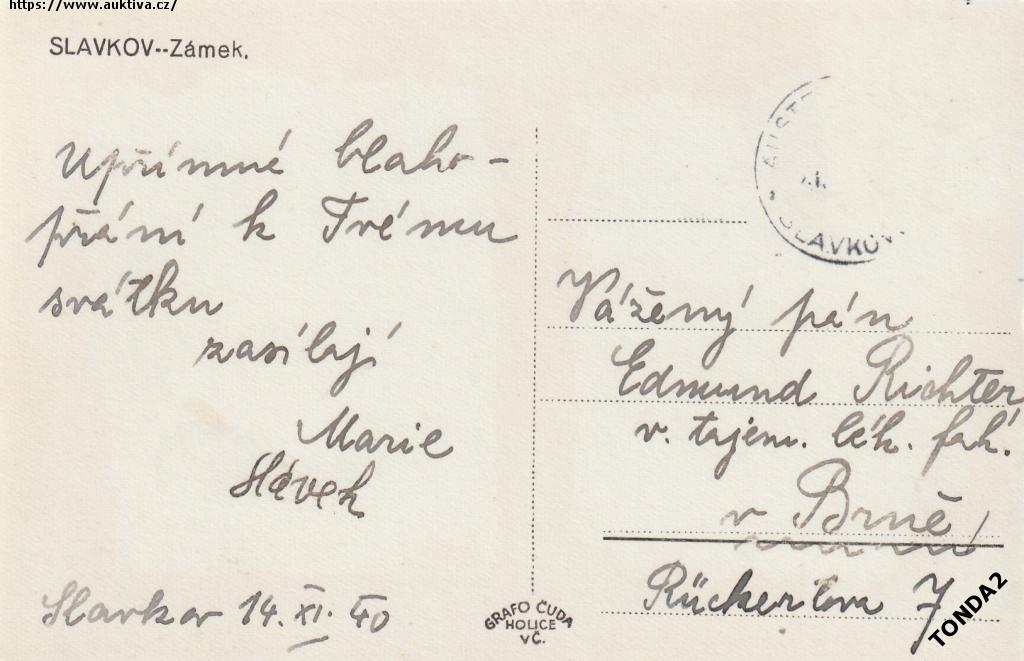 https://www.auktiva.cz/
SLAVKOV--Zámek.
Upřímné blaho-
přání k Tvému
svátku
zasílají
Marie
Slávek
Slavkov 14. XI. 40
AUSTE
SLAVKOV
Vážený pán
Edmund Richter
v. tajem. lék. fak.
v Brně
Rückertova 7
GRAFO ČUDA
HOLICE
VČ.
TONDA2